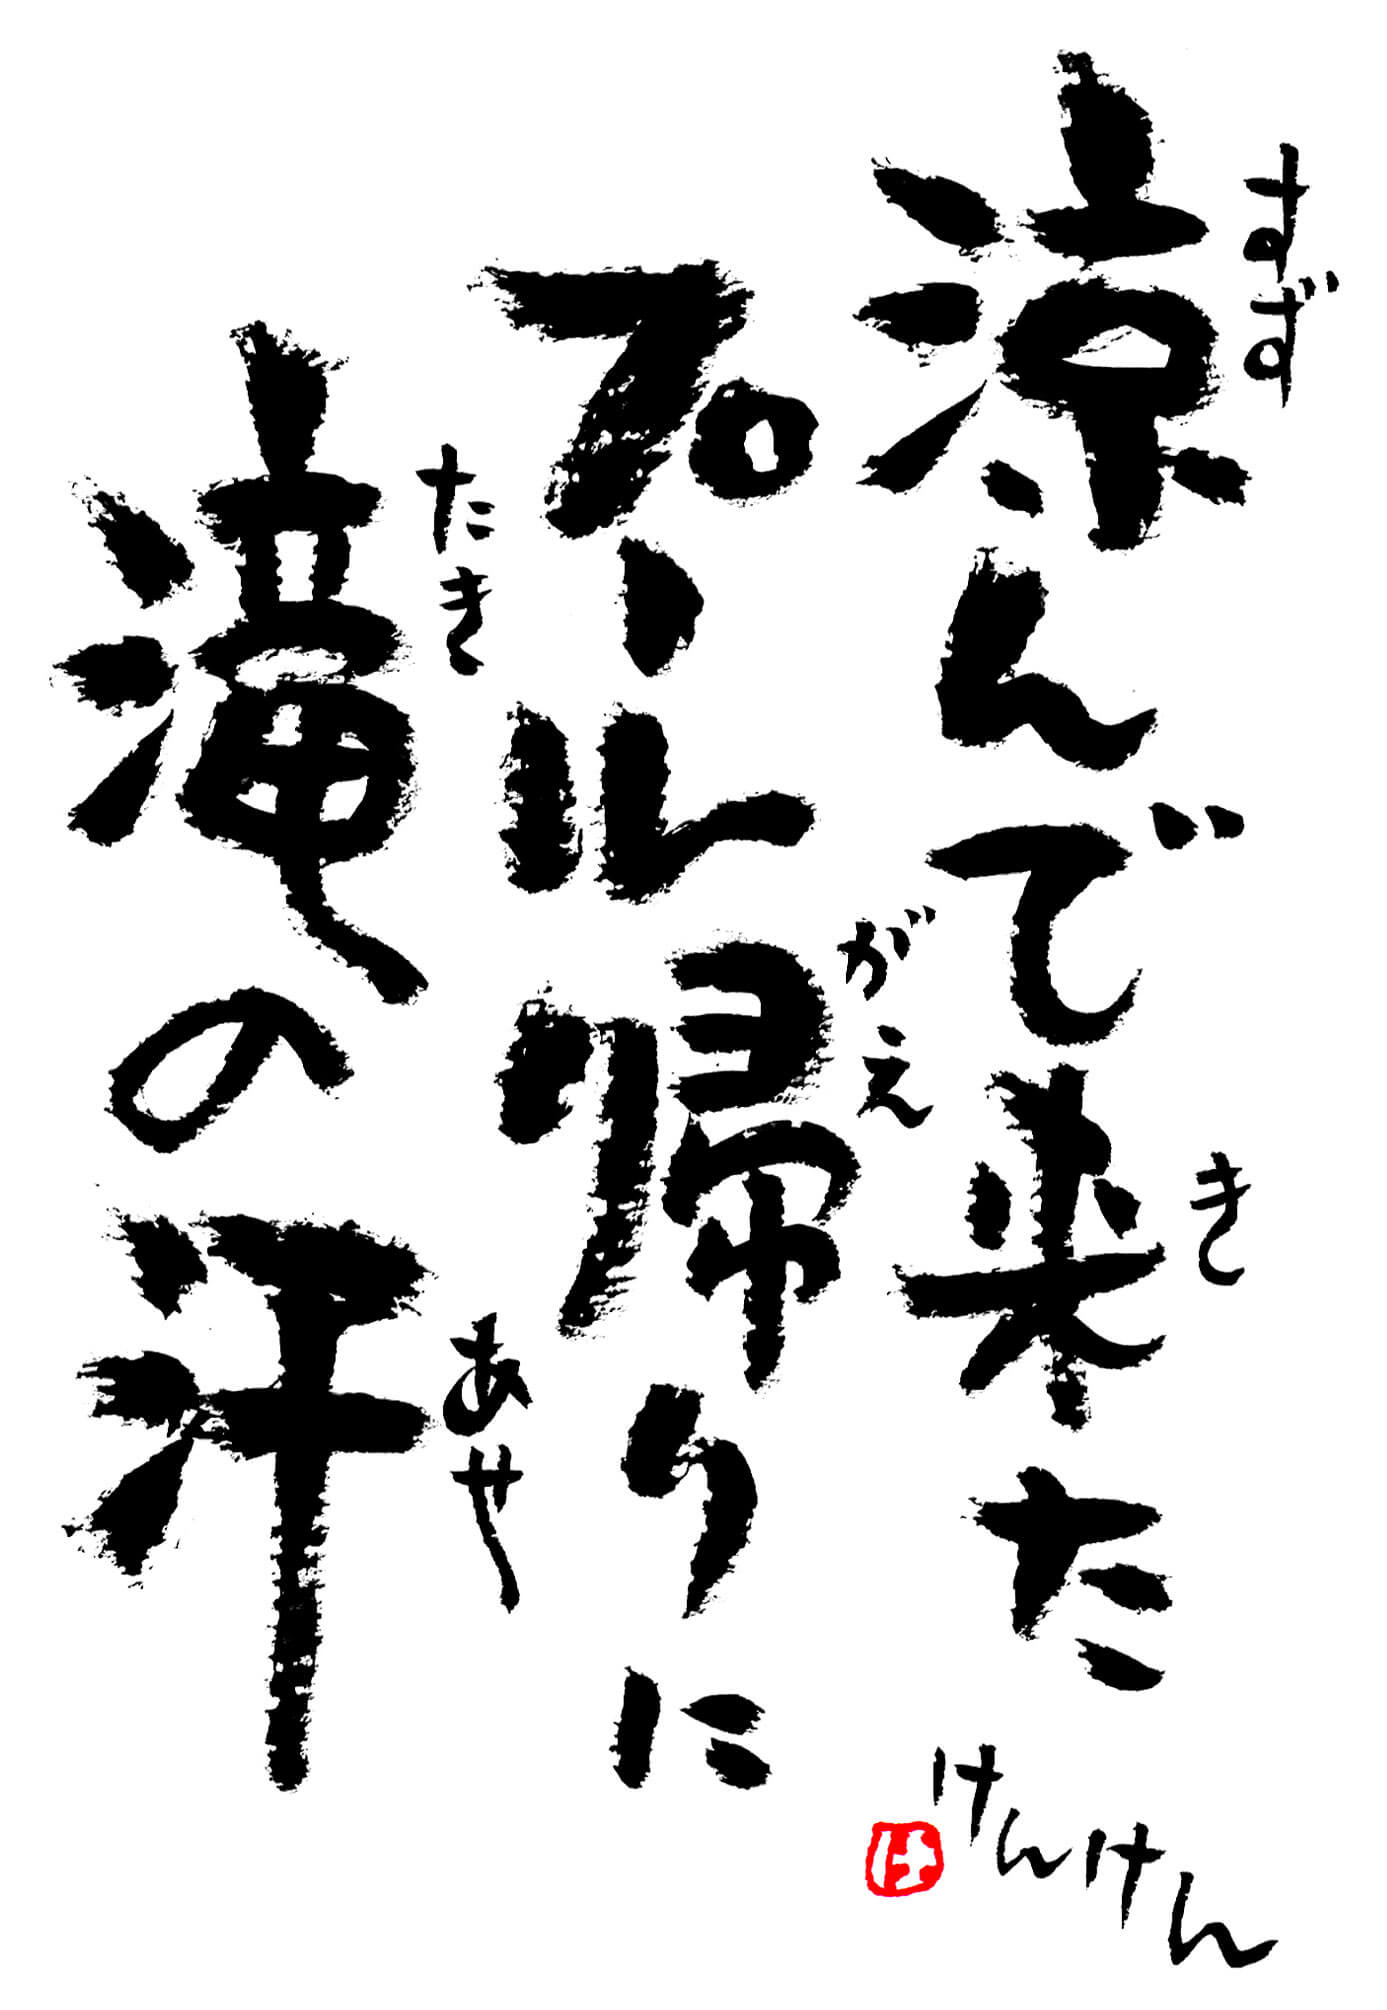 涼んで来た
すず
き
プール帰りに
がえ
滝の汗
たき
あせ
けんけん
け